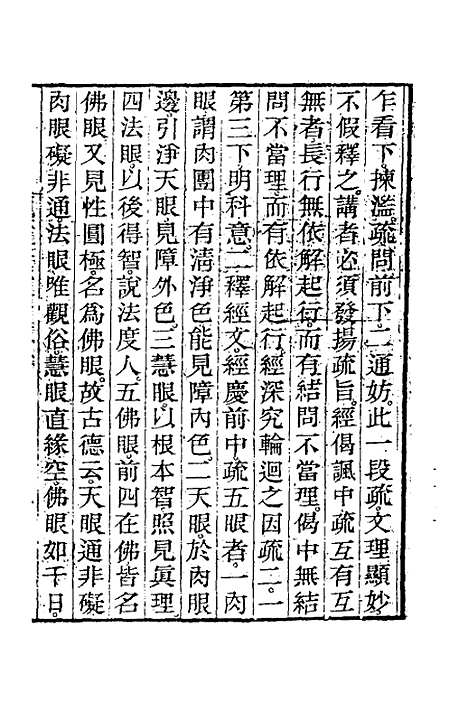 乍看下。揀濫。疏問前下。二通妨。此一段疏。文理顯妙。
不假釋之。講者必須發揚疏旨。經偈諷中疏互有互
無者。長行無依解起行。而有結問不當理。偈中無結
問不當理。而有依解起行。經深究輪迴之因疏二。一
第三下明科意。二釋經文。經慶前中疏五眼者。一肉
眼。謂肉團中有清淨色。能見障內色。二天眼。於肉眼
邊。引淨天眼。見障外色。三慧眼。以根本智照見眞理。
四法眼。以後得智。說法度人。五佛眼。前四在佛皆名
佛眼。又見性圓極。名爲佛眼。故古德云。天眼通非礙。
肉眼礙非通。法眼唯觀俗。慧眼直緣空。佛眼如千日。